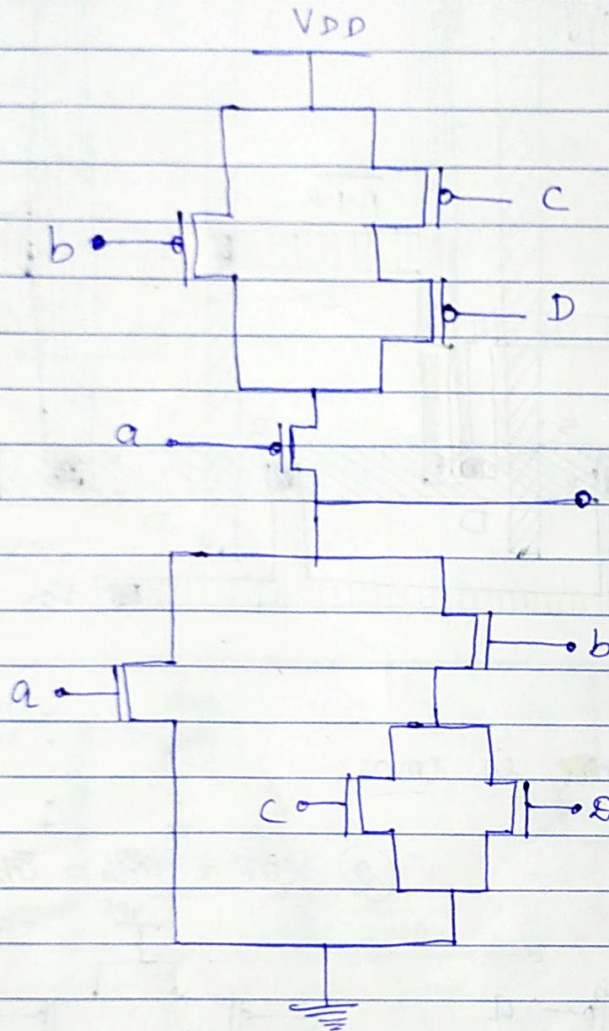 VDD
C
b
D
a
b
a
C
D